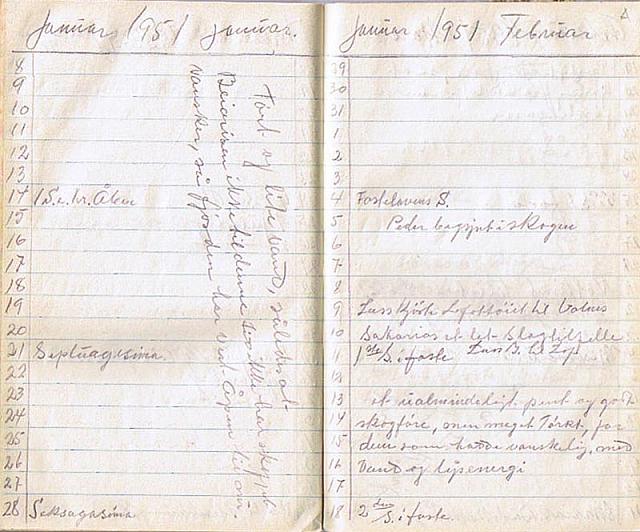 Januar 1951 Januar.
8
9
10
11
12
13
14 1 S. e. kr. Åben
15
16
17
18
19
20
21 Septuagesima.
22
23
24
25
26
27
28 Seksagesima
Tørt og lite vand, således at
Beiarisen ikke
vansker, så fjorden har vært åpen til nu.
Januar 1951 Februar
29
30
31
1
2
3
4 Fastelavens S.
5 Peder begynt i skogen
6
7
8
9 til Valnes
10 Sakarias et let
11 1ste S. i faste
12
13 et ualmindeligt pent og godt
14 skogføre, men meget Tørkt, for
15 dem som hadde vanskelig, med
16 Vand og lysenergi
17
18 2den S. i faste